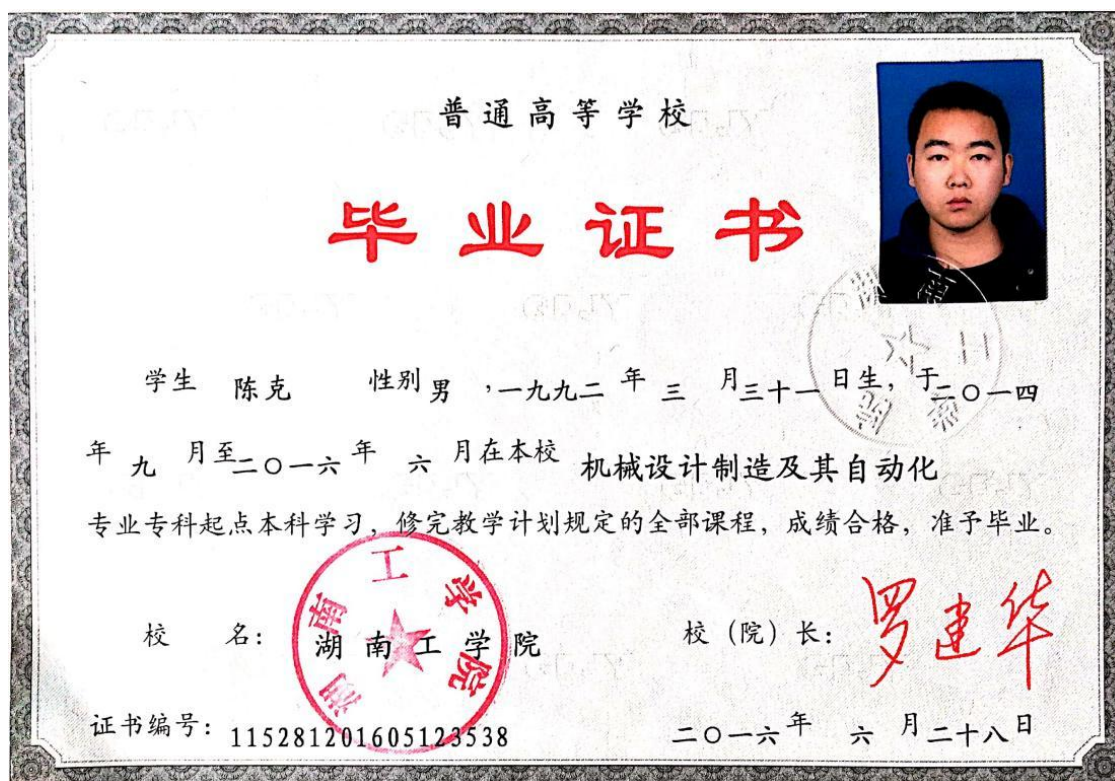 普通高等学校
毕业证书
学生 陈克 性别 男 ,一九九二 年 三 月三十一日生, 于二〇一四
年 九 月至二〇一六年 六 月在本校 机械设计制造及其自动化
专业专科起点本科学习, 修完教学计划规定的全部课程, 成绩合格, 准予毕业。
校 名: 湖南工学院 校(院)长: 罗建华
湖南工学院
湖南工学院
证书编号: 115281201605123538 二〇一六年 六 月二十八日